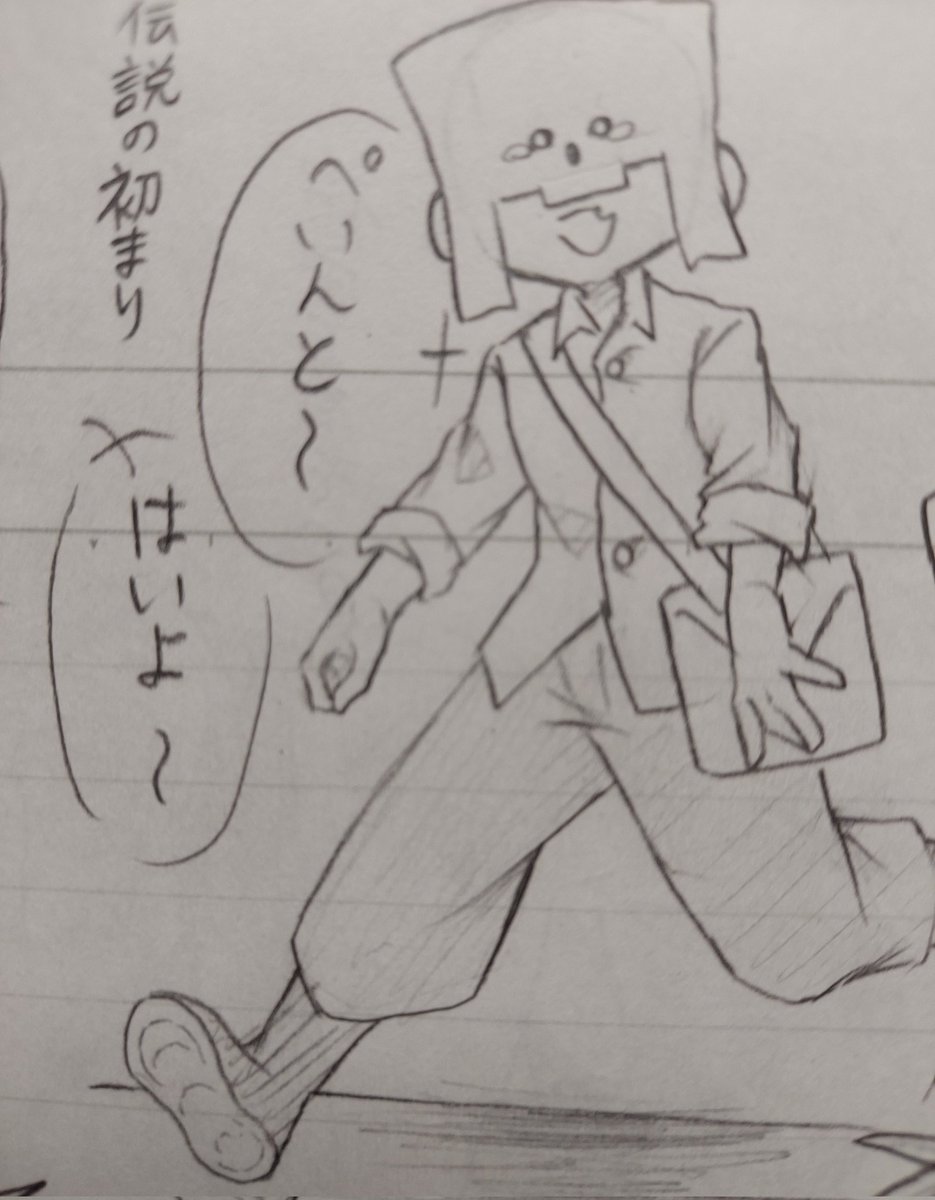 ぺいんと〜
伝説の初まり
はいよ〜